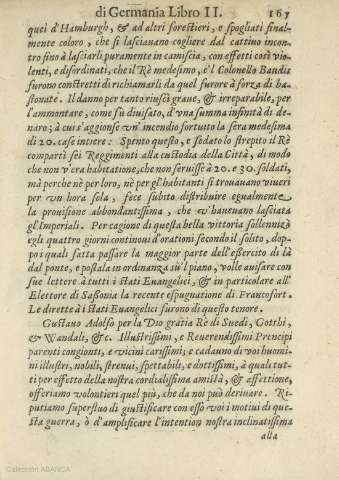 di Germania Libro II. 165
quei d'Hamburgh, & ad altri forestieri, e spogliati final-
mente coloro, che si lasciauano cogliere dal cattiuo incon-
tro fino à lasciarli puramente in camiscia, con effetti così vio-
lenti, e disordinati, che il Rè medesimo, e'l Colonello Baudis
furono constretti di richiamarli da quel furore à forza di ba-
stonate. Il danno per tanto riuscì graue, & irreparabile, per
l'ammontare, come fù diuisato, d'vna summa infinità di de-
naro; à cui s'aggionse vn'incendio fortuito la sera medesima
di 20. case intiere: Spento questo, e sedato lo strepito il Rè
compartì sei Reggimenti alla custodia della Città, di modo
che non v'era habitatione, che non seruisse à 20. e 30. soldati,
mà perche nè per loro, nè per gl'habitanti si trouauano viueri
per vn hora sola, fece subito distribuire egualmente
la prouisione abbondantissima, che v'haueuano lasciata
gl'Imperiali. Per cagione di questa bella vittoria sollennizò
egli quattro giorni continoui d'orationi secondo il solito, dop-
pos quali fatta passare la maggior parte dell'essercito di là
dal ponte, e postala in ordinanza sù'l piano, volle auisare con
sue lettere à tutti i Stati Euangelici, & in particolare all'
Elettore di Sassonia la recente espugnatione di Francofort.
Le dirette à i stati Euangelici furono di questo tenore.
Gustauo Adolfo per la Dio gratia Rè di Suedi, Gotthi,
& Wandali, &c. Illustrissimi, e Reuerendissimi Prencipi
parenti congionti, e vicini carissimi; e cadauno di voi huomi-
ni illustri, nobili, strenui, spettabili, e dottissimi, à quali tut-
ti per effetto della nostra cordialissima amistà, & affettione,
offeriamo volontieri quel più, che da noi può deriuare. Ri-
putiamo superfluo di giustificare con esso voi i motiui di que-
sta guerra, ò d'amplificare l'intention nostra inclinatissima
alla
Colección ABANCA